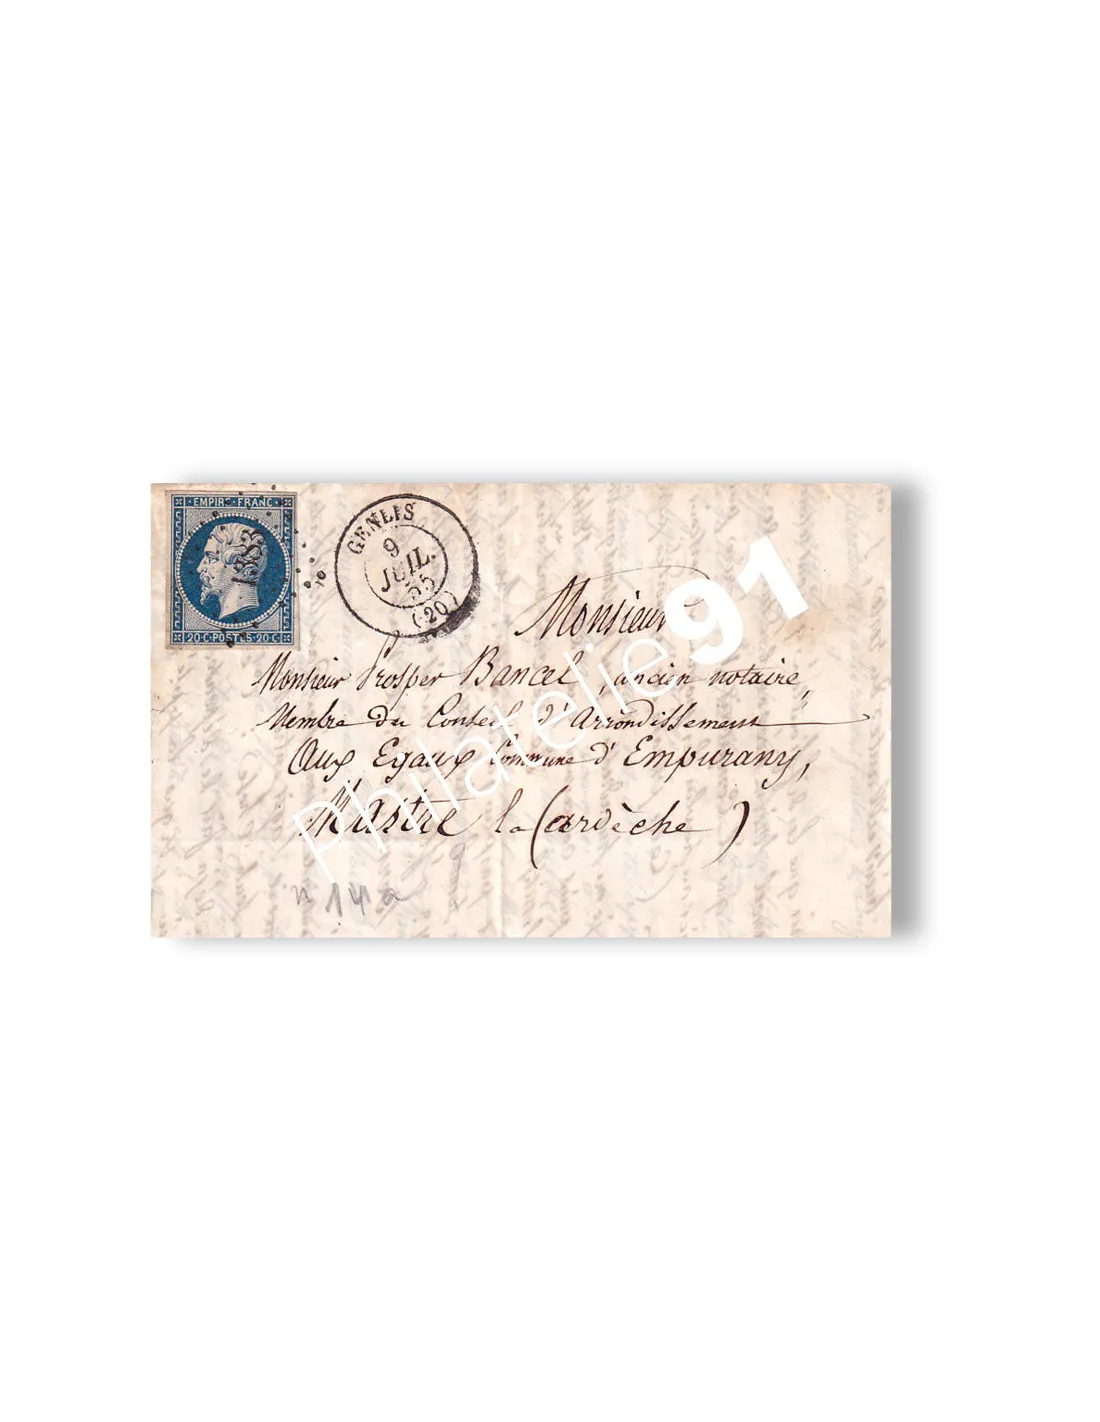 EMPIR FRANC
1383
20·C·POSTES·20·C
GENLIS
9
JUIL.
55
(20)
Monsieur
Monsieur Prosper Bancel, ancien notaire,
Membre du Conseil d'Arrondissement
Aux Egaux Commune d'Empurany,
Mastre la (ardèche)
n 14 a
Philatelie91